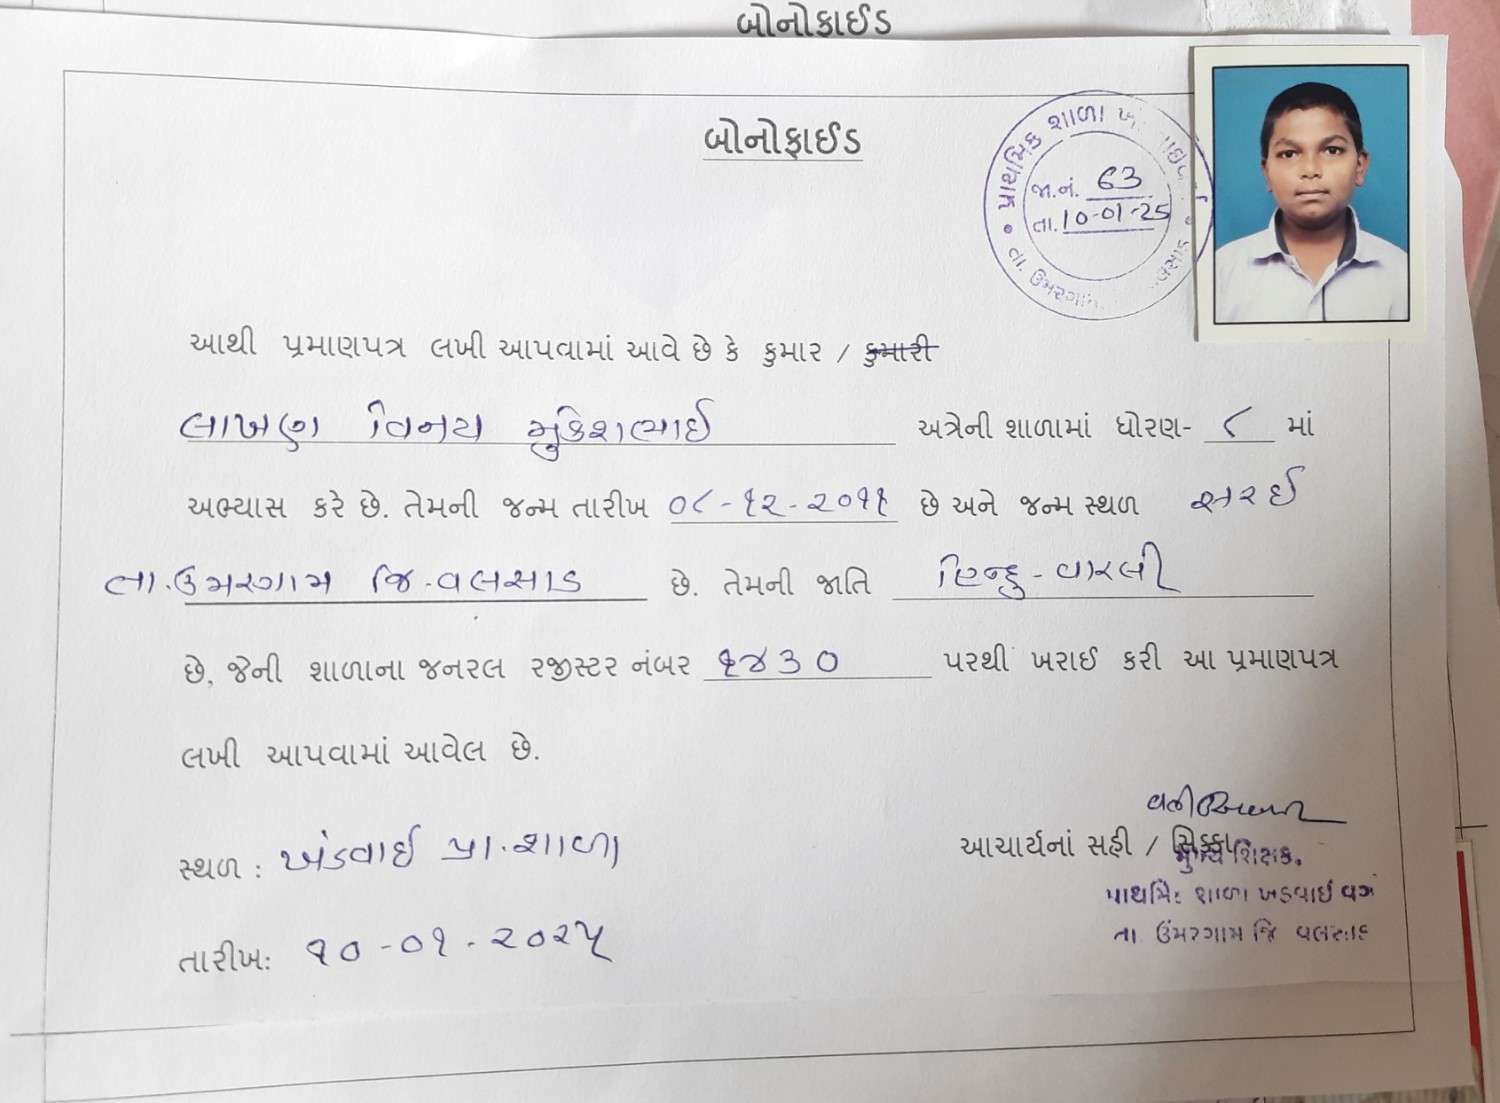 બોનોફાઈડ
બોનોફાઈડ
પ્રાથમિક શાળા
જા.નં. 63
તા. 10-01-25
તા. ઉમરગામ
આથી પ્રમાણપત્ર લખી આપવામાં આવે છે કે કુમાર / કુમારી
લાખણ વિનય મુકેશભાઈ અત્રેની શાળામાં ધોરણ- ૮ માં
અભ્યાસ કરે છે. તેમની જન્મ તારીખ ૦૮-૧૨-૨૦૧૧ છે અને જન્મ સ્થળ સરઈ
તા.ઉમરગામ જિ-વલસાડ છે. તેમની જાતિ હિન્દુ-વારલી
છે, જેની શાળાના જનરલ રજીસ્ટર નંબર ૧૪૩૦ પરથી ખરાઈ કરી આ પ્રમાણપત્ર
લખી આપવામાં આવેલ છે.
સ્થળ : ખંડવાઈ પ્રા.શાળા
આચાર્યનાં સહી / સિક્કા
મુખ્ય શિક્ષક.
શાળા ખડવાઈ
તા ઉંમરગામ જિ વલસાડ
તારીખ: ૧૦-૦૧-૨૦૨૫